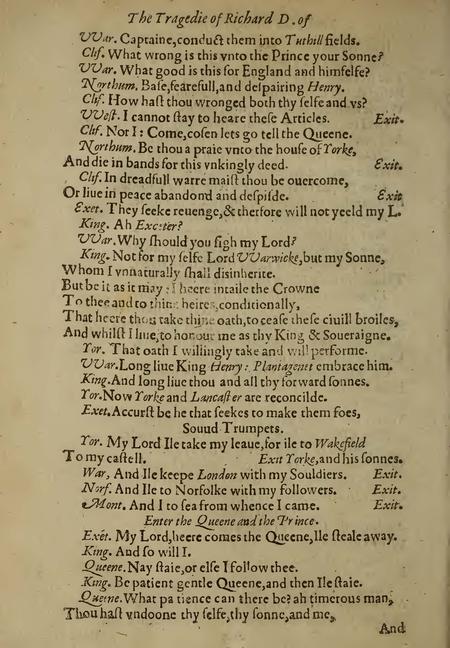 The Tragedie of Richard D. of
VVar. Captaine,conduct them into Tuthill fields.
Clif. What wrong is this vnto the Prince your Sonne?
VVar. What good is this for England and himselfe?
Northum. Base,fearefull,and despairing Henry.
Clif. How hast thou wronged both thy selfe and vs?
VVest. I cannot stay to heare these Articles. Exit.
Clif. Nor I: Come,cosen lets go tell the Queene.
Northum. Be thou a praie vnto the house of Yorke,
And die in bands for this vnkingly deed. Exit.
Clif. In dreadfull warre maist thou be ouercome,
Or liue in peace abandond and despisde. Exit
Exet. They seeke reuenge,& therfore will not yeeld my L.
King. Ah Exceter?
VVar. Why should you sigh my Lord?
King. Not for my selfe Lord VVarwicke,but my Sonne,
Whom I vnnaturally shall disinherite.
But be it as it may : I heere intaile the Crowne
To thee and to thine heires,conditionally,
That heere thou take thine oath,to cease these ciuill broiles,
And whilst I liue,to honour me as thy King & Soueraigne.
Yor. That oath I willingly take and will performe.
VVar. Long liue King Henry: Plantagenet embrace him.
King. And long liue thou and all thy forward sonnes.
Yor. Now Yorke and Lancaster are reconcilde.
Exet. Accurst be he that seekes to make them foes,
Souud Trumpets.
Yor. My Lord Ile take my leaue,for ile to Wakefield
To my castell. Exit Yorke,and his sonnes.
War, And Ile keepe London with my Souldiers. Exit.
Norf. And Ile to Norfolke with my followers. Exit.
Mont. And I to sea from whence I came. Exit.
Enter the Queene and the Prince.
Exet. My Lord,heere comes the Queene,Ile steale away.
King. And so will I.
Queene. Nay staie,or else I follow thee.
King. Be patient gentle Queene,and then Ile staie.
Queene. What patience can there be? ah timerous man,
Thou hast vndoone thy selfe,thy sonne,and me,
And